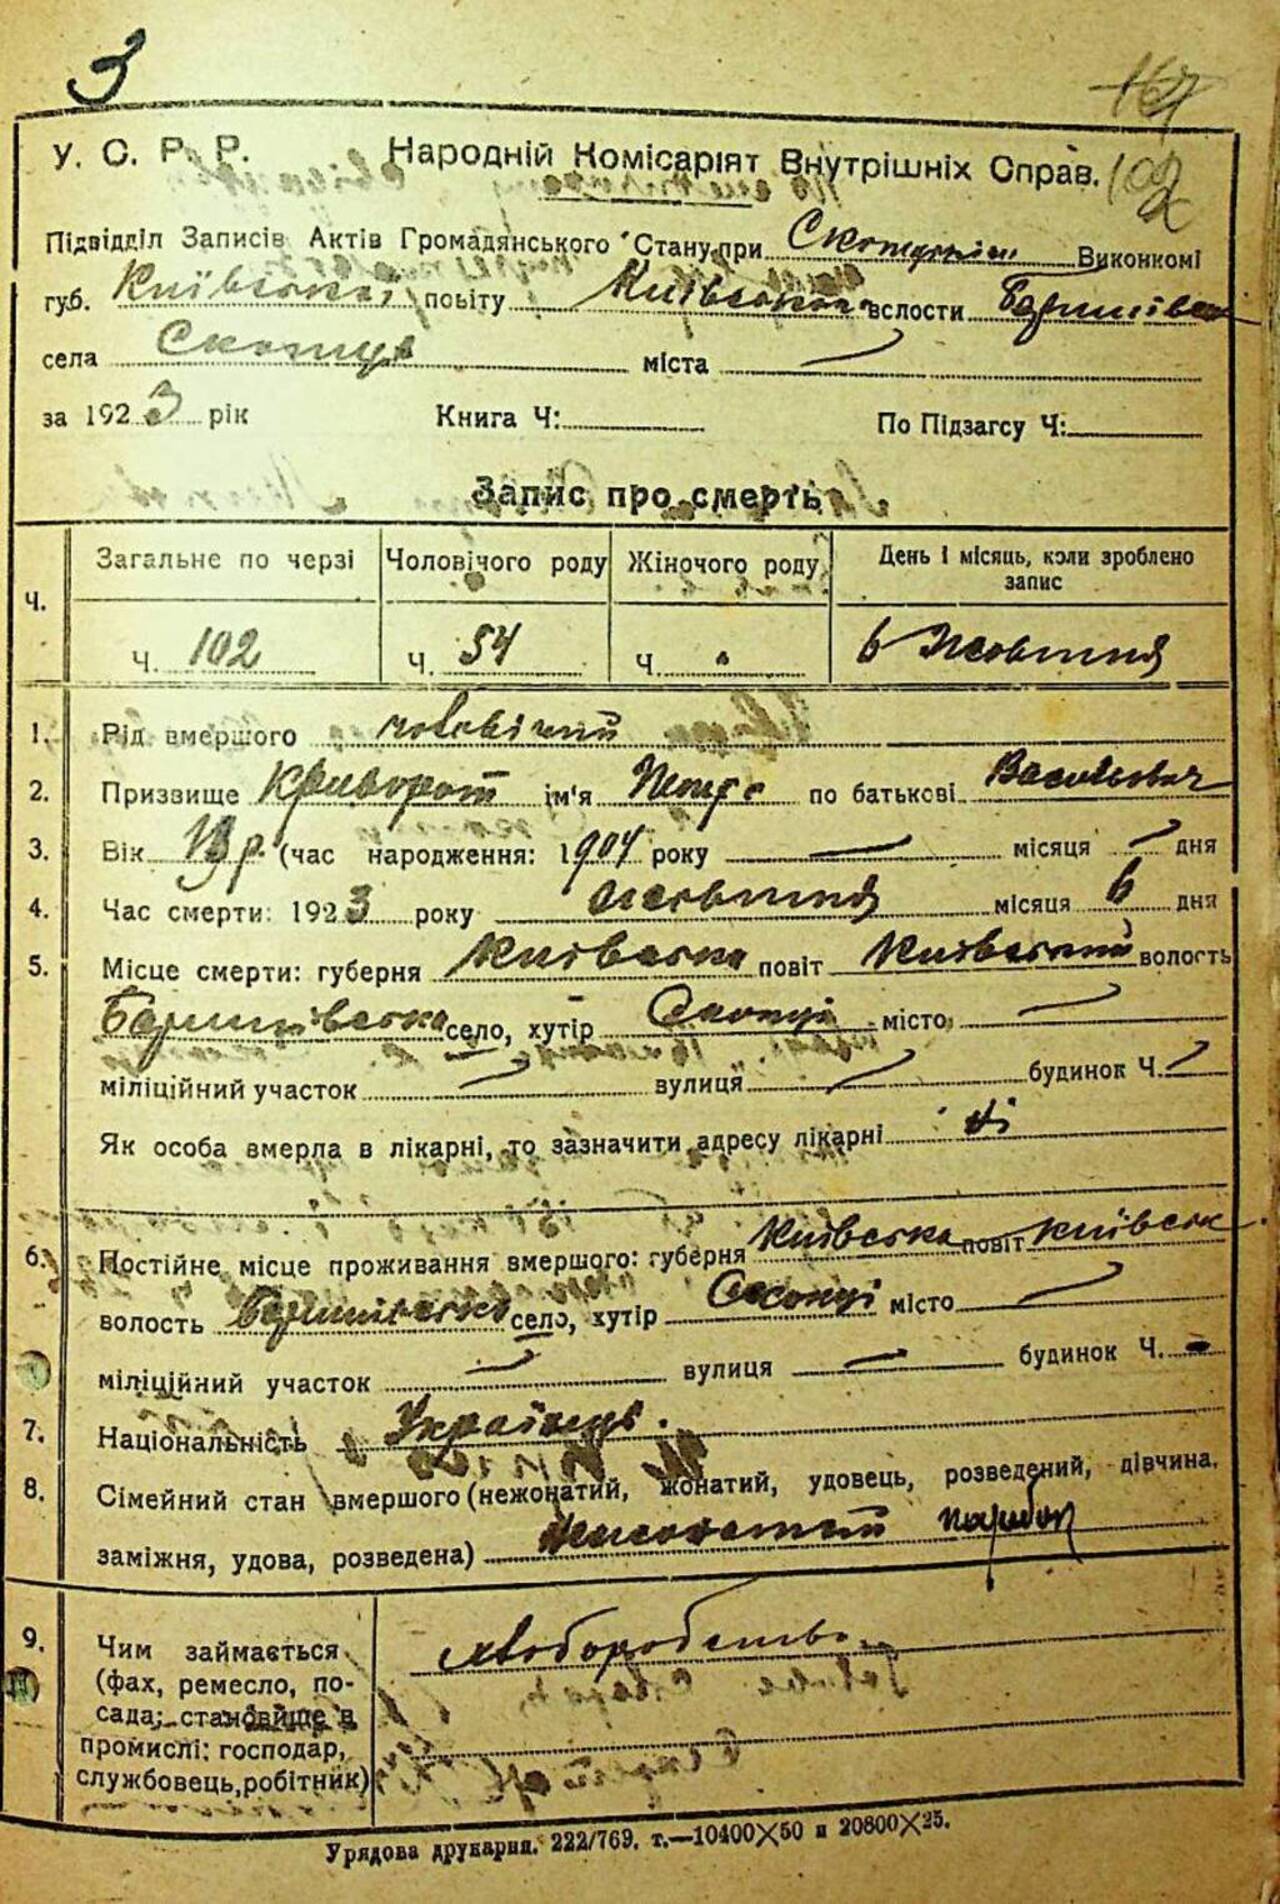 3
167
У. С. Р. Р. Народній Комісаріят Внутрішніх Справ.
102
Підвідділ Записів Актів Громадянського Стану при Виконкомі
губ. Київської повіту Київського волости
села міста
за 1923 рік Книга Ч: По Підзагсу Ч:
Запис про смерть
Загальне по черзі Чоловічого роду Жіночого роду День і місяць, коли зроблено запис
Ч. Ч. 102 Ч. 54 Ч. 6 Жовтня
1. Рід вмершого чоловічий
2. Призвище Криворот ім'я Петро по батькові Васильович
3. Вік 19 р. (час народження: 1904 року — місяця — дня
4. Час смерти: 1923 року Жовтня місяця 6 дня
5. Місце смерти: губерня Київська повіт Київський волость
Баришівська село, хутір Скопці місто —
міліційний участок — вулиця — будинок Ч. —
Як особа вмерла в лікарні, то зазначити адресу лікарні ні
6. Постійне місце проживання вмершого: губерня Київська повіт Київськ
волость Баришівська село, хутір Скопці місто —
міліційний участок — вулиця — будинок Ч. —
7. Національність Українець.
8. Сімейний стан вмершого (нежонатий, жонатий, удовець, розведений, дівчина,
заміжня, удова, розведена) парубок
9. Чим займається
(фах, ремесло, по-
сада; становище в
промислі: господар,
службовець, робітник)
хлібородство
Урядова друкарня. 222/769. т.—10400X50 и 20800X25.